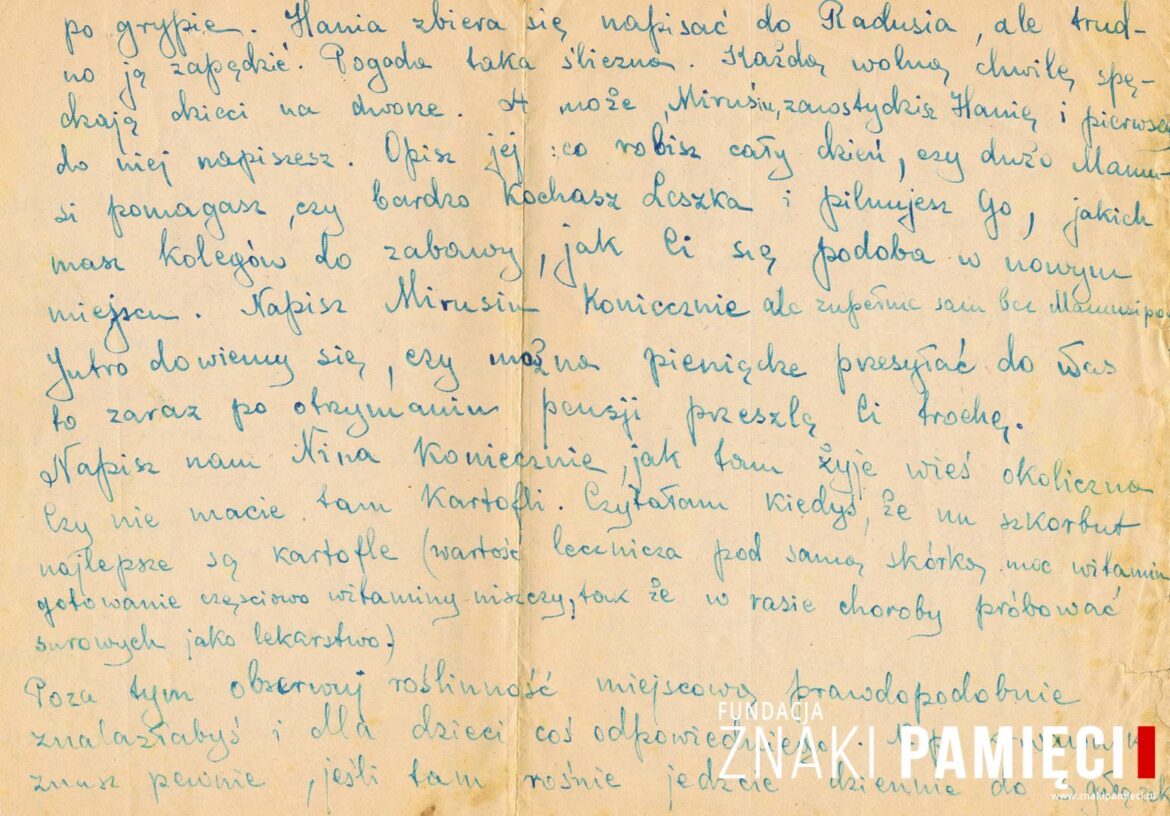 po grypie. Hania zbiera się napisać do Radusia, ale trud-
no ją zapędzić. Pogoda taka śliczna. Każdą wolną chwilę spę-
dzają dzieci na dworze. A może Mirusiu, zawstydzisz Hanię i pierwszy
do niej napiszesz. Opisz jej :co robisz cały dzień, czy dużo Mamu-
si pomagasz, czy bardzo kochasz Leszka i pilnujesz Go, jakich
masz kolegów do zabawy, jak Ci się podoba w nowym
miejscu. Napisz Mirusiu koniecznie ale zupełnie sam bez Mamusi
Jutro dowiemy się, czy można pieniądze przesyłać do Was
to zaraz po otrzymaniu pensji prześlę Ci trochę.
Napisz nam Nina koniecznie, jak tam żyje wieś okoliczna
Czy nie macie tam kartofli. Czytałam kiedyś, że na szkorbut
najlepsze są kartofle (wartość lecznicza pod samą skórką moc witamin
gotowanie częściowo witaminy niszczy, tak że w rasie choroby próbować
surowych jako lekarstwo.)
Poza tym obserwuj roślinność miejscową prawdopodobnie
znalazłabyś i dla dzieci coś odpowiedniego. Np.
znasz pewnie, jeśli tam rośnie jedzcie dziennie do
FUNDACJA
ZNAKI PAMIĘCI
www.znakipamieci.pl